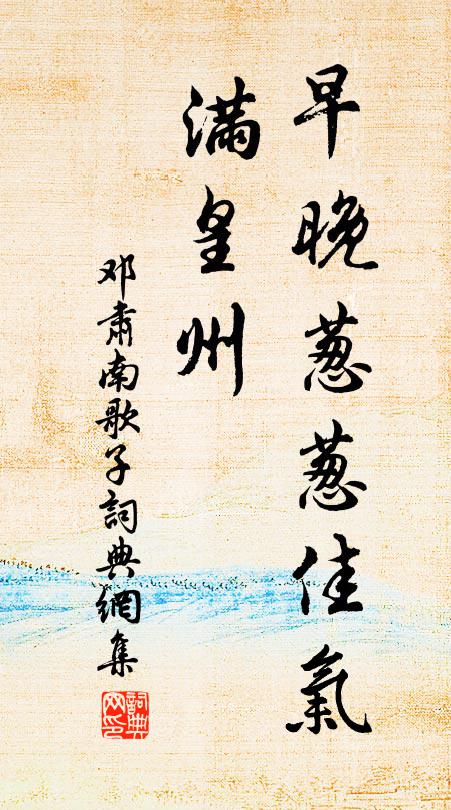 早晚葱葱佳氣
滿皇州
邓肅南歌子詞典網集
詞典
网印